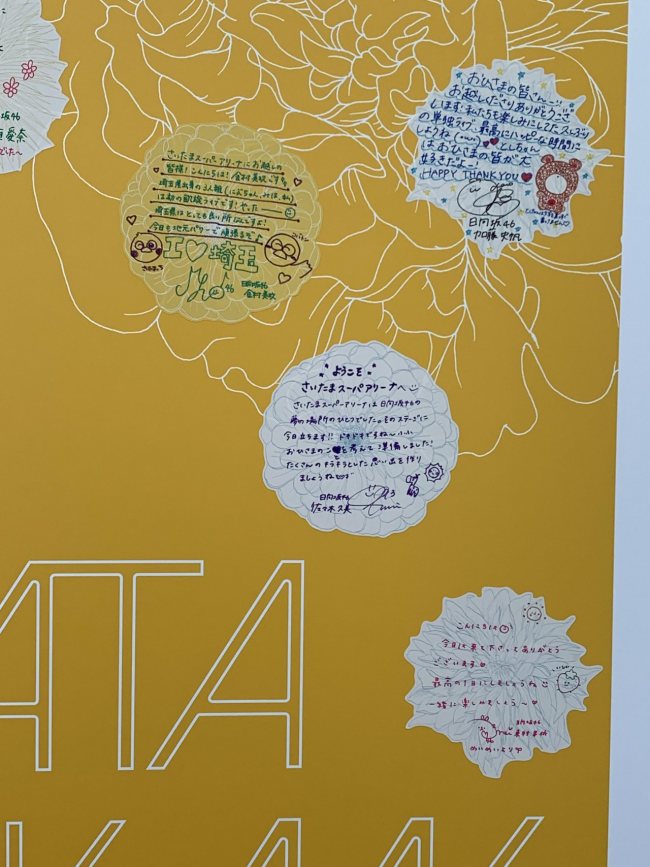 坂46
愛奈
おひさまの皆さん〜!!
お越しくださりありがとうござ
います。私たちも楽しみにしてた
の単独ライブ、最高にハッピーな時間に
しようね
はおひさまの皆が大
好きだよー!
HAPPY THANK YOU♥
日向坂46
加藤史帆
さいたまスーパーアリーナにお越しの
皆様!こんにちは!金村美玖です
埼玉県出身の3人組(にぶちゃん、みほ、私)
は初の凱旋ライブです!やったー
埼玉県はとっても良い所なんですよ!
今日も地元パワーで頑張るぞ
I♡埼玉
46
日向坂46
金村美玖
ようこそ
さいたまスーパーアリーナへ
さいたまスーパーアリーナは日向坂46の
夢の場所のひとつでした。そのステージに
今日立ちます!! ドキドキですね〜
おひさまのこと♥を考えて準備しました!
たくさんのキラキラとした思い出を作り
ましょうね
日向坂46
佐々木久美
こんにちは
今日は来て下さってありがとう
ございます
最高の1日にしましょうね
一緒に楽しみましょう〜♡
日向坂46
東村芽依
めいめいより♡
ATA